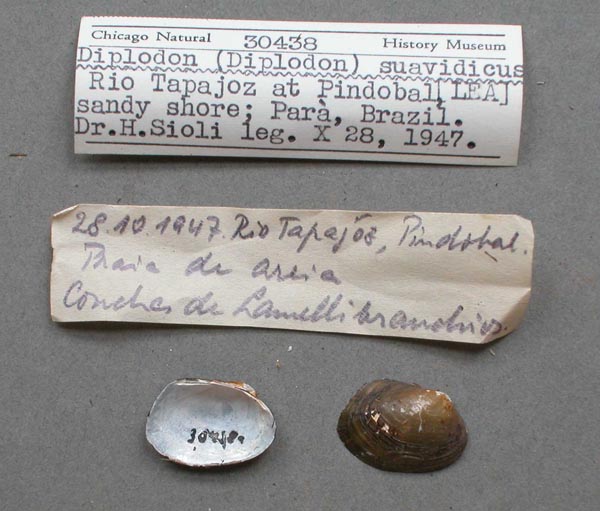 Chicago Natural 30438 History Museum
Diplodon (Diplodon) suavidicus
Rio Tapajoz at Pindobal[LEA]
sandy shore; Parà, Brazil.
Dr.H.Sioli leg. X 28, 1947.
28.10.1947. Rio Tapajóz, Pindobal.
Praia de areia
Conchas de Lamellibranchios.
30438